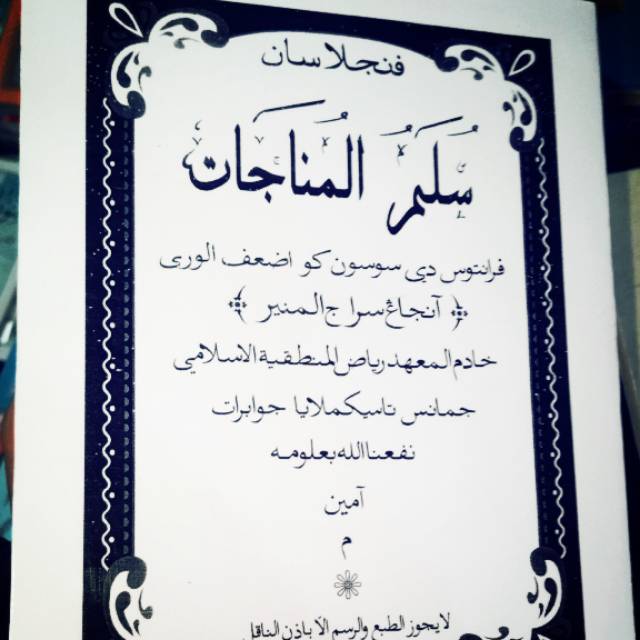 فنجلاسان
سُلَّمُ المُنَاجَات
فرانتوس دي سوسون كو اضعف الورى
﴿ آنجاڠ سراج المنير ﴾
خادم المعهد رياض المنطقية الاسلامي
جمانس تاسيكملايا جوابرات
نفعنا الله بعلومه
آمين
م
لا يجوز الطبع والرسم الا باذن الناقل